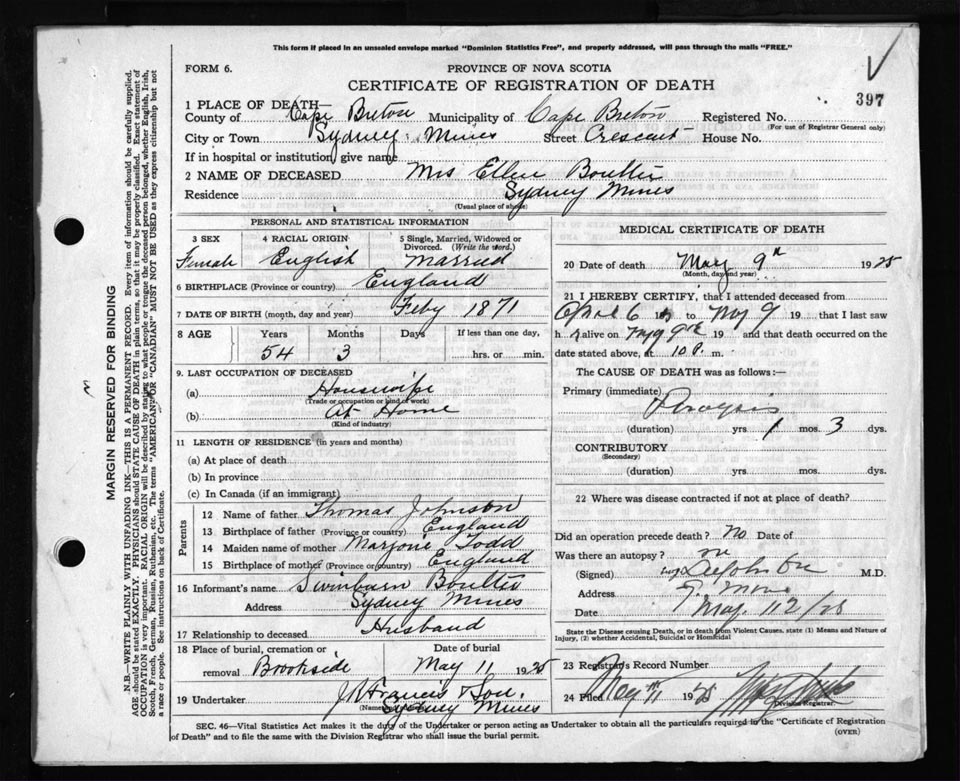 This form if placed in an unsealed envelope marked "Dominion Statistics Free", and properly addressed, will pass through the mails "FREE."
FORM 6.
PROVINCE OF NOVA SCOTIA
CERTIFICATE OF REGISTRATION OF DEATH
397
1 PLACE OF DEATH—
County of Cape Breton Municipality of Cape Breton Registered No.
(For use of Registrar General only)
City or Town Sydney Mines Street Crescent House No.
If in hospital or institution give name
2 NAME OF DECEASED Mrs Ellen Boulter
Residence Sydney Mines
(Usual place of abode)
PERSONAL AND STATISTICAL INFORMATION
3 SEX 4 RACIAL ORIGIN 5 Single, Married, Widowed or Divorced. (Write the word.)
Female English Married
6 BIRTHPLACE (Province or country) England
7 DATE OF BIRTH (month, day and year) Feby 1871
8 AGE Years Months Days If less than one day,
54 3 hrs. or min.
9. LAST OCCUPATION OF DECEASED
(a) Housewife
(Trade or occupation or kind of work)
(b) At Home
(Kind of industry)
11 LENGTH OF RESIDENCE (in years and months)
(a) At place of death
(b) In province
(c) In Canada (if an immigrant)
Parents
12 Name of father Thomas Johnson
13 Birthplace of father (Province or country) England
14 Maiden name of mother Marjorie Todd
15 Birthplace of mother (Province or country) England
16 Informant's name Swinburn Boulter
Address Sydney Mines
17 Relationship to deceased Husband
18 Place of burial, cremation or removal Brookside
Date of burial May 11 1925
19 Undertaker J R Francis & Son.
Sydney Mines
MEDICAL CERTIFICATE OF DEATH
20 Date of death May 9th 1925
(Month, day and year)
21 I HEREBY CERTIFY, that I attended deceased from
April 6 19 to May 9 19 that I last saw
h r alive on May 9th 19 and that death occurred on
date stated above, at 10 P. m.
The CAUSE OF DEATH was as follows:—
Primary (immediate)
(duration) yrs 1 mos. 3 dys.
CONTRIBUTORY
(Secondary)
(duration) yrs. mos. dys.
22 Where was disease contracted if not at place of death?
Did an operation precede death? No Date of
Was there an autopsy? no
(Signed) M.D.
Address
Date May 12/25
State the Disease causing Death, or in death from Violent Causes, state (1) Means and Nature of
Injury, (2) whether Accidental, Suicidal or Homicidal
23 Registrar's Record Number
24 Filed May 11 1925
Division Registrar.
SEC. 46—Vital Statistics Act makes it the duty of the Undertaker or person acting as Undertaker to obtain all the particulars required in the "Certificate of Registration
of Death" and to file the same with the Division Registrar who shall issue the burial permit.
(OVER)
MARGIN RESERVED FOR BINDING
N.B.—WRITE PLAINLY WITH UNFADING INK—THIS IS A PERMANENT RECORD. Every item of information should be carefully supplied.
AGE should be stated EXACTLY. PHYSICIANS should STATE CAUSE OF DEATH in plain terms, so that it may be properly classified. Exact statement of
OCCUPATION is very important. RACIAL ORIGIN will be described by stating to what people or tongue the deceased person belonged, whether English, Irish,
Scotch, French, German, Russian, Ruthenian, etc. The terms "AMERICAN" OR "CANADIAN" MUST NOT BE USED as they express citizenship but not
a race or people. See instructions on back of Certificate.